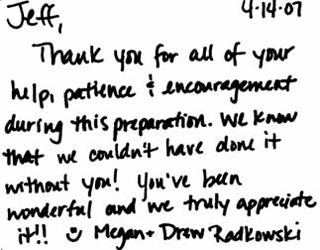 Jeff, 4-14-07
Thank you for all of your
help, patience & encouragement
during this preparation. We know
that we couldn't have done it
without you! You've been
wonderful and we truly appreciate
it!! Megan + Drew Radkowski